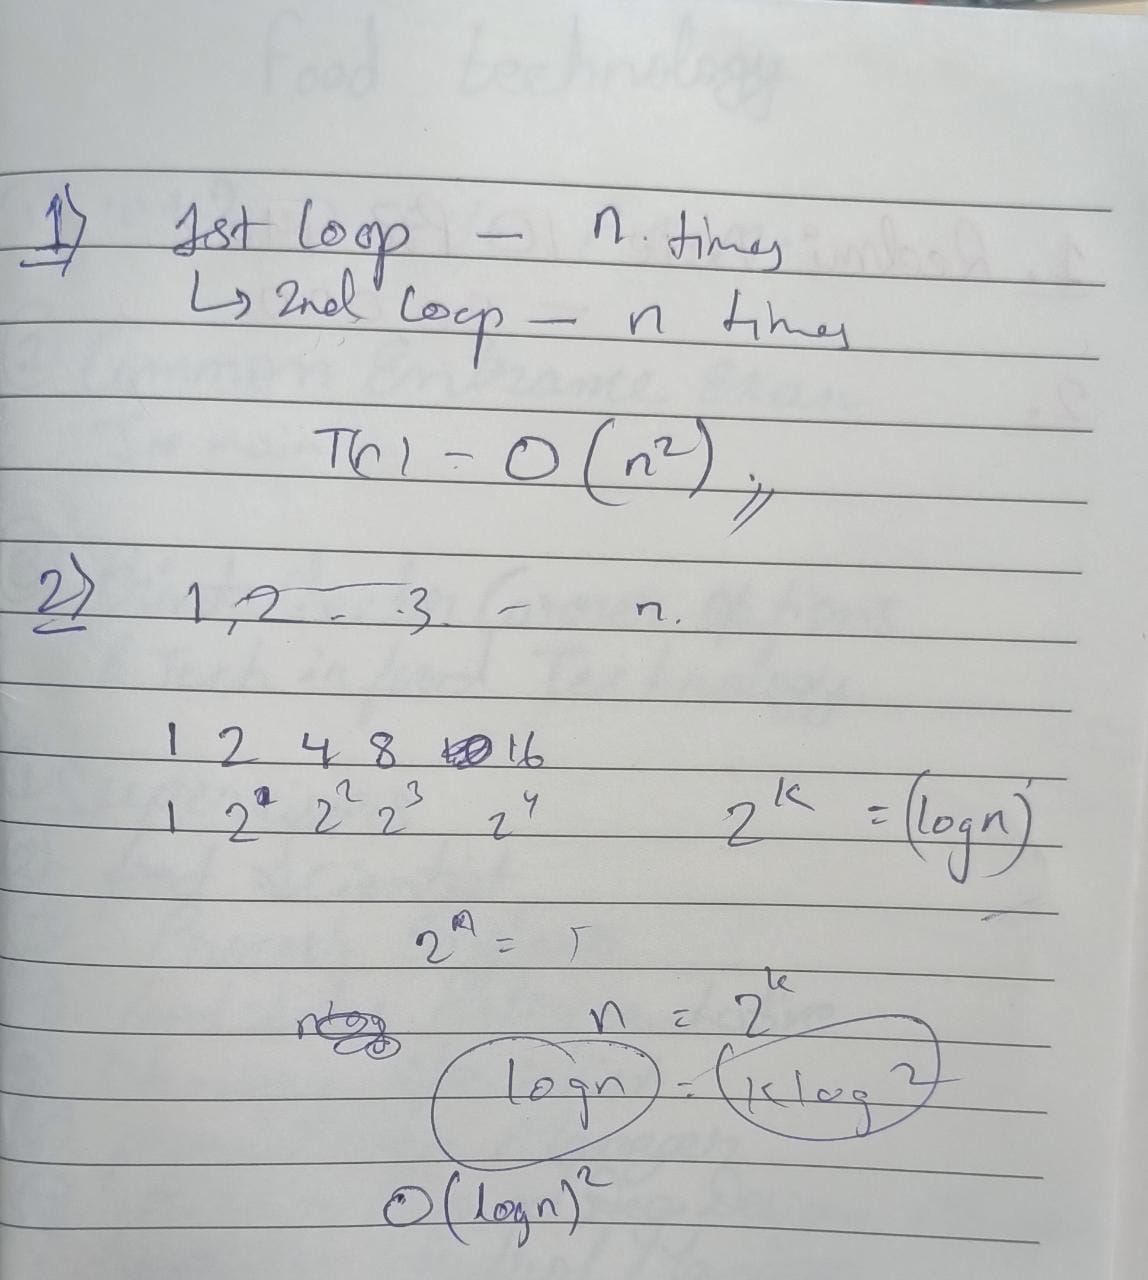 1) 1st loop - n. times
↳ 2nd loop - n times
T(n) - O(n²),,
2) 1, 2 - .3. - n.
1 2 4 8 16
1 2¹ 2² 2³ 2⁴ 2ᵏ = (logn)
2ᴬ =
n = 2ᵏ
logn = klog2
O(logn)²